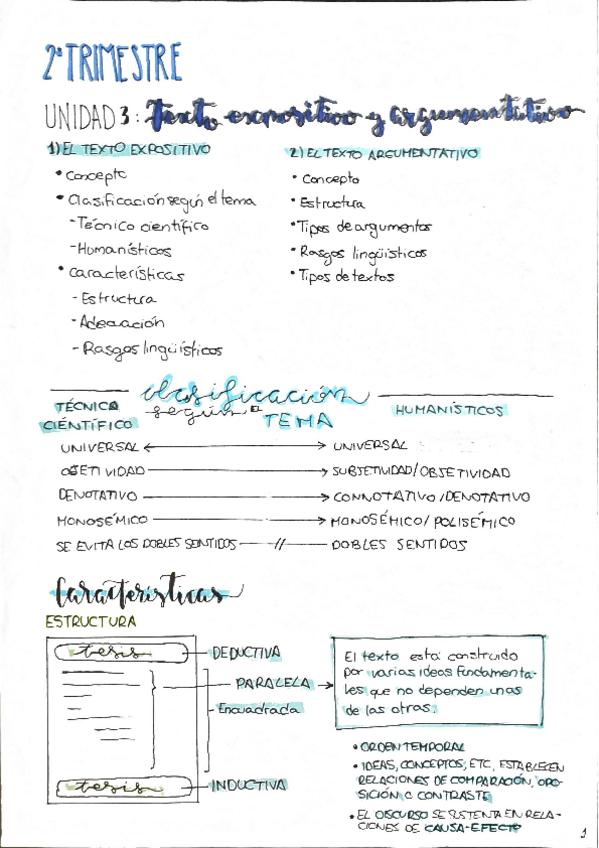 2º TRIMESTRE
UNIDAD 3: Texto expositivo y argumentativo
1) EL TEXTO EXPOSITIVO
• Concepto
• Clasificación según el tema
- Técnico científico
- Humanísticos
• Características
- Estructura
- Adecuación
- Rasgos lingüísticos
2) EL TEXTO ARGUMENTATIVO
• Concepto
• Estructura
• Tipos de argumentos
• Rasgos lingüísticos
• Tipos de textos
clasificación
según el TEMA
TÉCNICO
CIENTÍFICO
HUMANÍSTICOS
UNIVERSAL UNIVERSAL
OBJETIVIDAD SUBJETIVIDAD/OBJETIVIDAD
DENOTATIVO CONNOTATIVO/DENOTATIVO
MONOSÉMICO MONOSÉMICO/POLISÉMICO
SE EVITA LOS DOBLES SENTIDOS DOBLES SENTIDOS
Características
ESTRUCTURA
tesis DEDUCTIVA
PARALELA
Encuadrada
tesis INDUCTIVA
El texto está construido
por varias ideas fundamenta-
les que no dependen unas
de las otras.
• ORDEN TEMPORAL
• IDEAS, CONCEPTOS, ETC, ESTABLECEN
RELACIONES DE COMPARACIÓN, OPO-
SICIÓN O CONTRASTE
• EL DISCURSO SE SUSTENTA EN RELA-
CIONES DE CAUSA-EFECTO
1